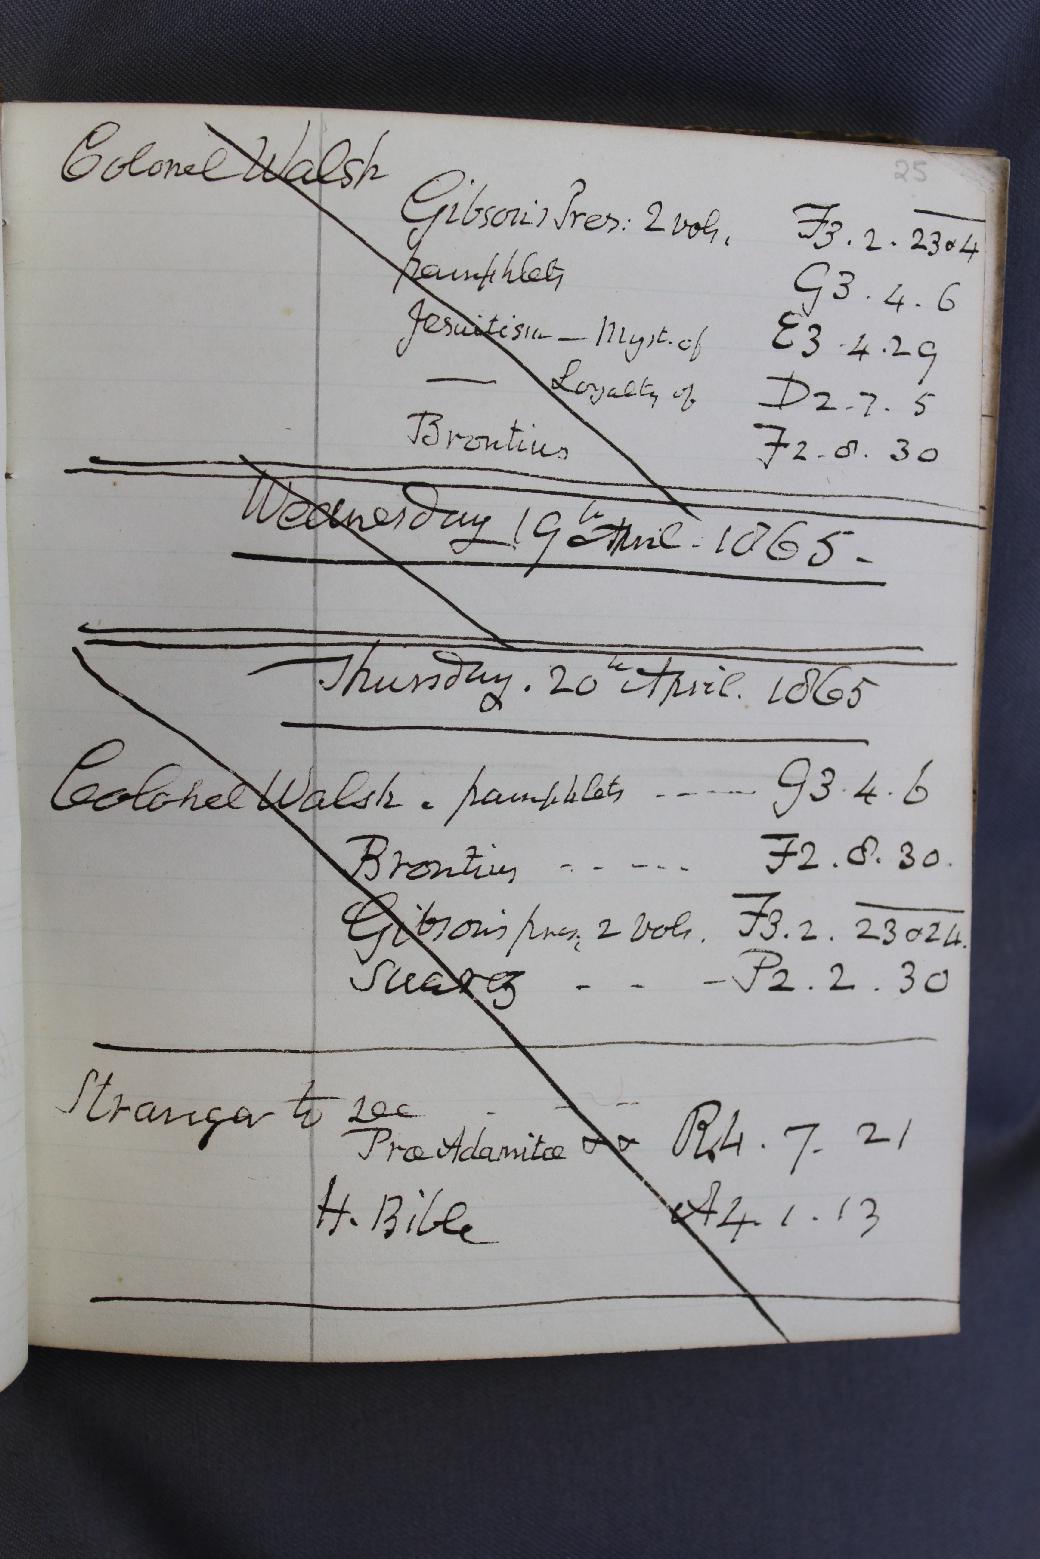 25
Colonel Walsh
Gibson's Pres: 2 vols. F3.2.23&4
pamphlets G3.4.6
Jesuitism — Myst. of E3.4.29
— Loyalty of D2.7.5
Brontius F2.8.30
Wednesday 19th April. 1865.
Thursday. 20th April. 1865
Colonel Walsh. pamphlets ---- G3.4.6
Brontius ----- F2.8.30.
Gibson's pres; 2 vols. F3.2.23&24.
Suarez - - - P2.2.30
Stranger to see - - -
Præ Adamitæ && R4.7.21
H. Bible A4.1.13